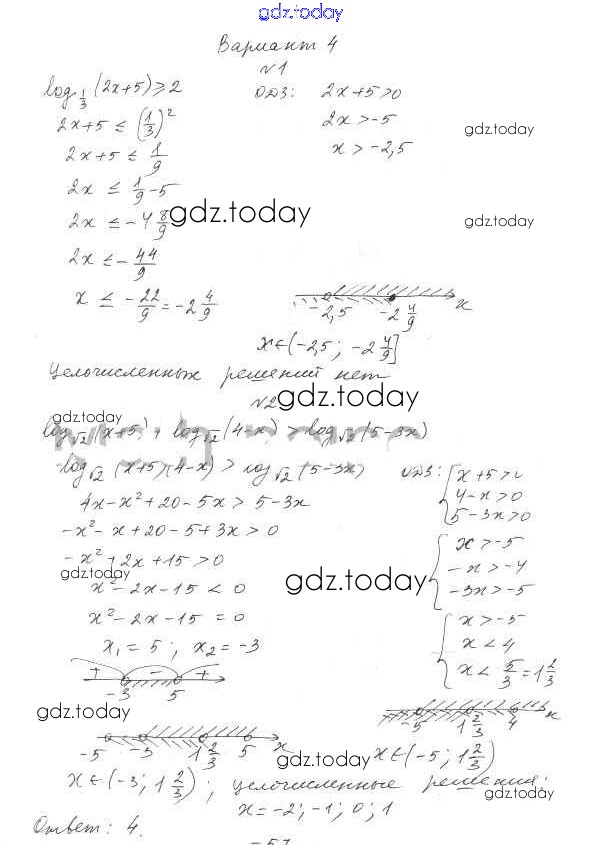 gdz.today
Вариант 4
№1
log_{1/3} (2x+5) ≥ 2
ОДЗ: 2x+5>0
2x+5 ≤ (1/3)^2
2x > -5
gdz.today
2x+5 ≤ 1/9
x > -2,5
2x ≤ 1/9 - 5
2x ≤ -4 8/9
gdz.today
gdz.today
2x ≤ - 44/9
x ≤ - 22/9 = -2 4/9
-2,5 -2 4/9 x
x∈(-2,5; -2 4/9]
Целочисленных решений нет
№2
gdz.today
gdz.today
log_{√2} (x+5) + log_{√2} (4-x) > log_{√2} (5-3x)
log_{√2} (x+5)(4-x) > log_{√2} (5-3x)
ОДЗ: { x+5>0
4x-x²+20-5x > 5-3x
4-x>0
-x²-x+20-5+3x > 0
5-3x>0
-x²+2x+15 > 0
{ x>-5
gdz.today
gdz.today
-x>-4
x²-2x-15 < 0
-3x>-5
x²-2x-15 = 0
{ x>-5
x₁ = 5; x₂ = -3
x<4
x< 5/3 = 1 2/3
+ - +
-3 5
gdz.today
-5 1 2/3 4 x
-5 -3 1 2/3 5 x
gdz.today
x∈(-5; 1 2/3)
x∈(-3; 1 2/3); целочисленные решения:
gdz.today
x = -2; -1; 0; 1
Ответ: 4.